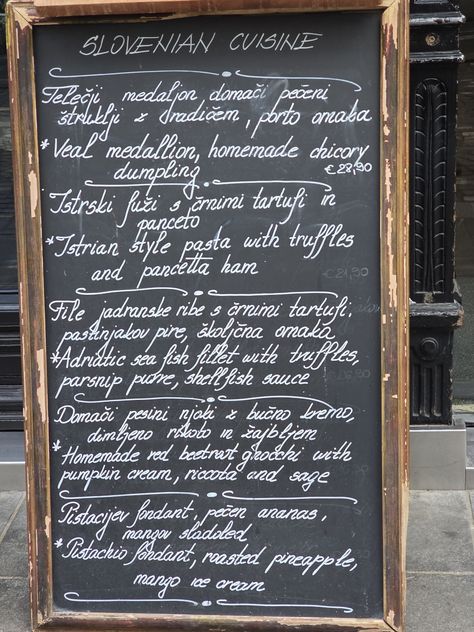 SLOVENIAN CUISINE
Telečji medaljon domači pečeni
štruklji z dradičem, porto omaka
* Veal medallion, homemade chicory
dumpling €28,90
Istrski fuži s črnimi tartufi in
panceto
* Istrian style pasta with truffles
and pancetta ham €21,90
File jadranske ribe s črnimi tartufi,
pastinjakov pire, školjčna omaka
* Adriatic sea fish fillet with truffles,
parsnip puree, shellfish sauce
Domači pesini njoki z bučno kremo,
dimljeno rikoto in žajbljem
* Homemade red beetroot gnocchi with
pumpkin cream, riccota and sage
Pistacijev fondant, pečen ananas,
mangov sladoled
* Pistachio fondant, roasted pineapple,
mango ice cream